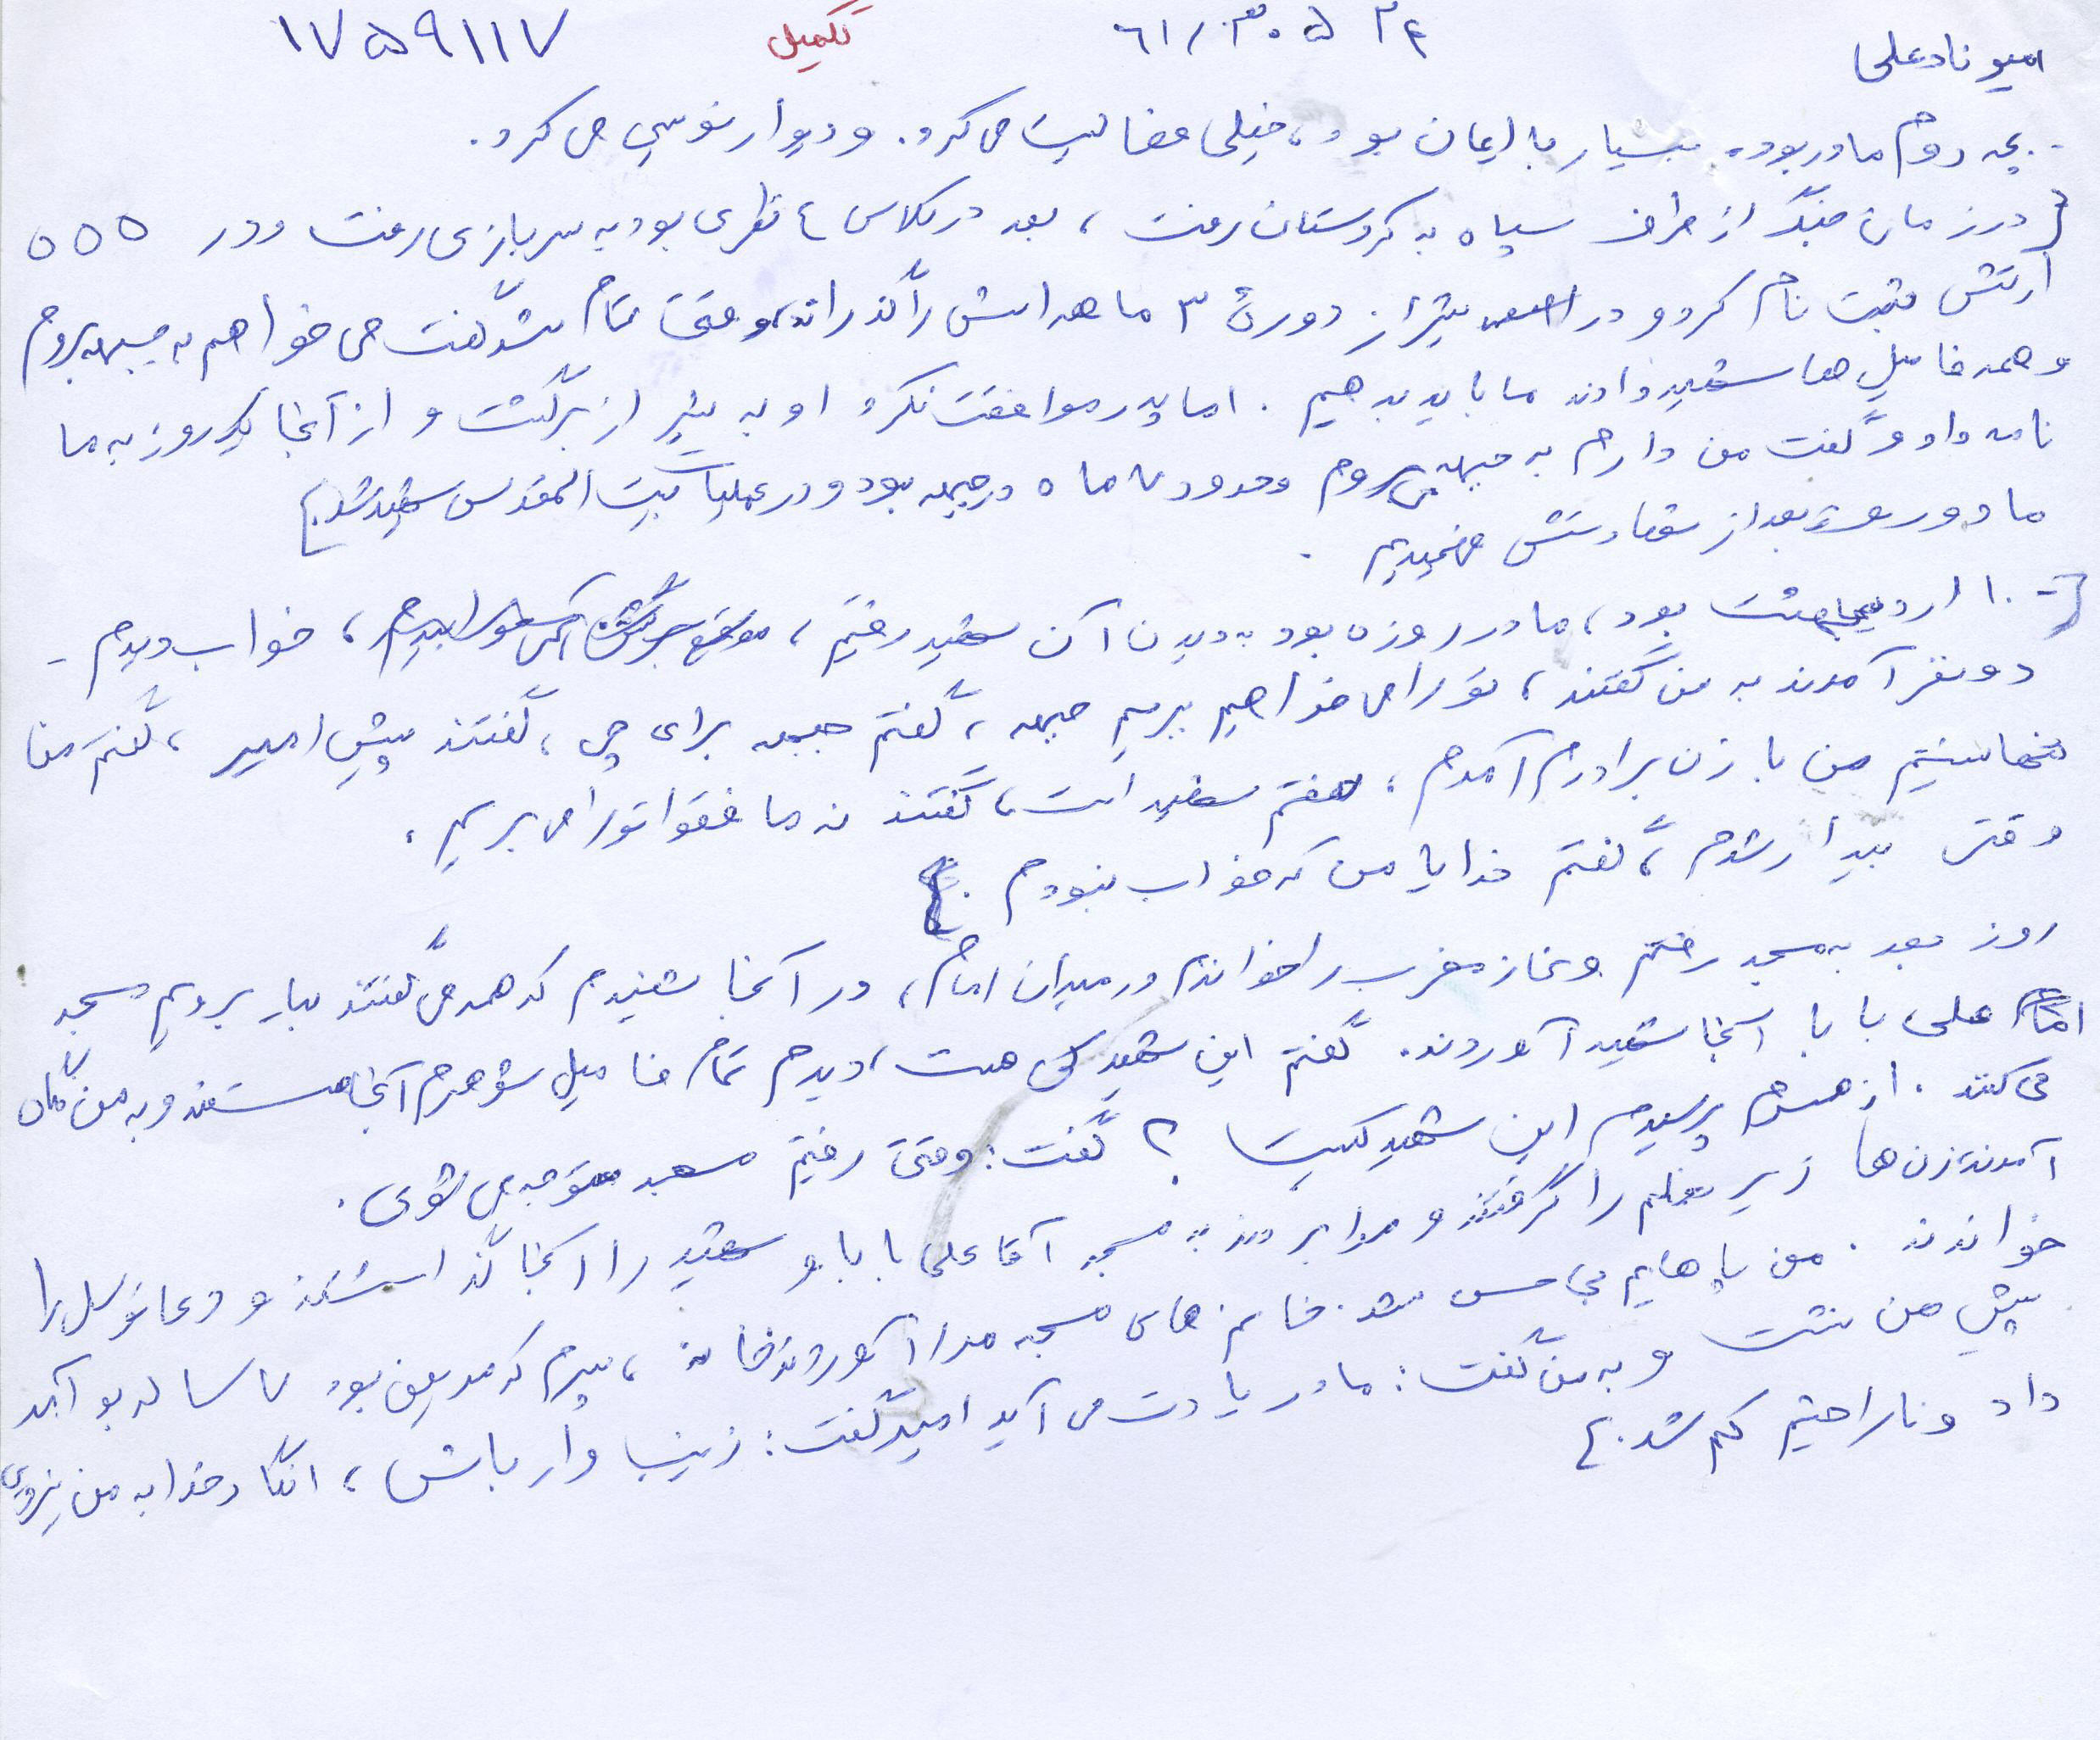 امیر نادعلی
۶۱/۳۰۵۲۴
تکمیل
۱۷۵۹۱۱۷
بچه دوم مادر بود. بسیار با ایمان بود، خیلی فعالیت می کرد. و دیوار نویسی می کرد.
در زمان جنگ از طرف سپاه به کردستان رفت، بعد در کلاس ۴ نظری بود به سربازی رفت و در ۵۵۵
ارتش ثبت نام کرد و در شیراز دورۀ ۳ ماهه اش را گذراند، وقتی تمام شد گفت می خواهم به جبهه بروم
و همه فامیل ها شهید دادند ما باید بدهیم. اما پدر موافقت نکرد او به شیراز برگشت و از آنجا یک روز به ما
نامه داد و گفت من دارم به جبهه می روم و حدود ۷ ماه در جبهه بود و در عملیات بیت المقدس شهید شد.
ما دو روز بعد از شهادتش فهمیدیم.
۱۰ اردیبهشت بود، مادر روزه بود به دیدن آن شهید رفتیم، موقع برگشتن خوابیدم، خواب دیدم -
دو نفر آمدند به من گفتند، تو را می خواهیم ببریم جبهه، گفتم جبهه برای چی، گفتند پیش امیر، گفتم من
من با زن برادرم آمدم، گفتم شهید است، گفتند نه ما فقط تو را می بریم.
وقتی بیدار شدم، گفتم خدایا من که خواب نبودم.
روز بعد به مسجد رفتم و نماز مغرب را خواندم در میدان امام، در آنجا شنیدم که همه می گفتند بیا برویم مسجد
آقا علی بابا آنجا شهید آوردند. گفتم این شهید کی هست، دیدم تمام فامیل شوهرم آنجا هستند و به من نگاه
می کنند. از همه پرسیدم این شهید کیست؟ گفت: وقتی رفتیم مسجد متوجه می شوی.
آمدند زن ها زیر بغلم را گرفتند و مرا بردند به مسجد آقا علی بابا و شهید را آنجا گذاشتند و دعا توسل را
خواندند. من پاهایم بی حس شد. خانم های مسجد مرا آوردند خانه، پسرم که مریض بود ۷ ساله بود آمد
پیش من نشست و به من گفت: مادر یادت می آید امیر گفت: زینب وار باش، انگار خدا به من نیرویی
داد و ناراحتیم کم شد.